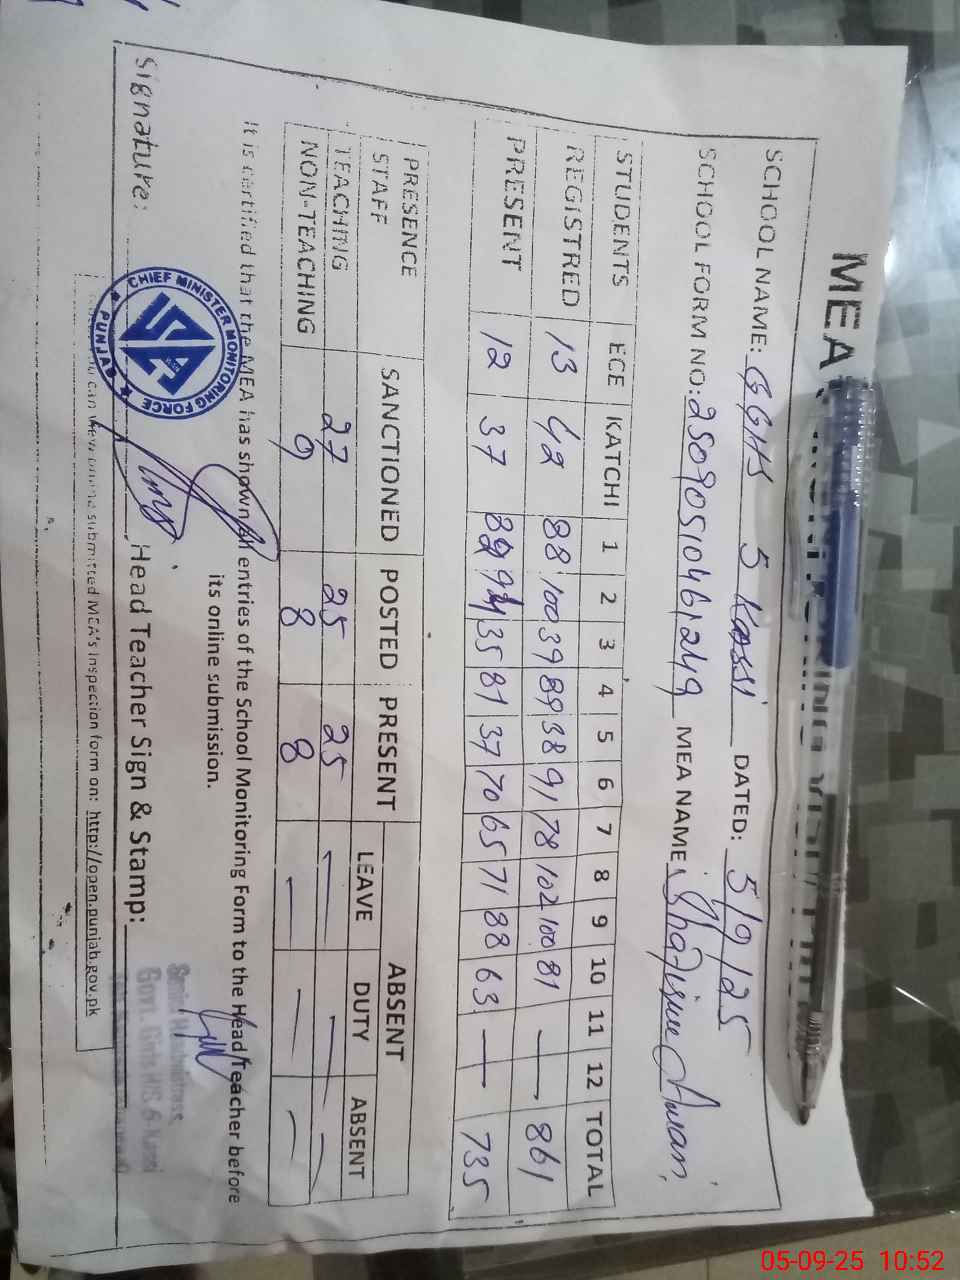 MEA
SCHOOL NAME: GGHS 5 Kassi DATED: 5/9/25
SCHOOL FORM NO: MEA NAME
STUDENTS ECE KATCHI 1 2 3 4 5 6 7 8 9 10 11 12 TOTAL
REGISTRED 13 42 88 100 39 89 38 91 78 102 100 81 — 861
PRESENT 12 37 35 81 37 70 65 71 88 63 — 735
PRESENCE STAFF SANCTIONED POSTED PRESENT ABSENT
LEAVE DUTY ABSENT
TEACHING 27 25 25 — — —
NON-TEACHING 9 8 8 — — —
It is certified that the MEA has shown all entries of the School Monitoring Form to the Head Teacher before
its online submission.
Signature: Head Teacher Sign & Stamp:
CHIEF MINISTER MONITORING FORCE
PUNJAB
can view online submitted MEA's inspection form on: http://open.punjab.gov.pk
Senior Headmistress
Govt. Girls H/S 5-Kassi
05-09-25 10:52